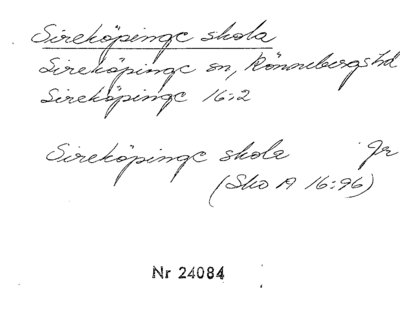 Sireköpinge skola
Sireköpinge sn, Rönnebergs hd
Sireköpinge 16:2
Sireköpinge skola Jr
(Sko A 16:96)
Nr 24084